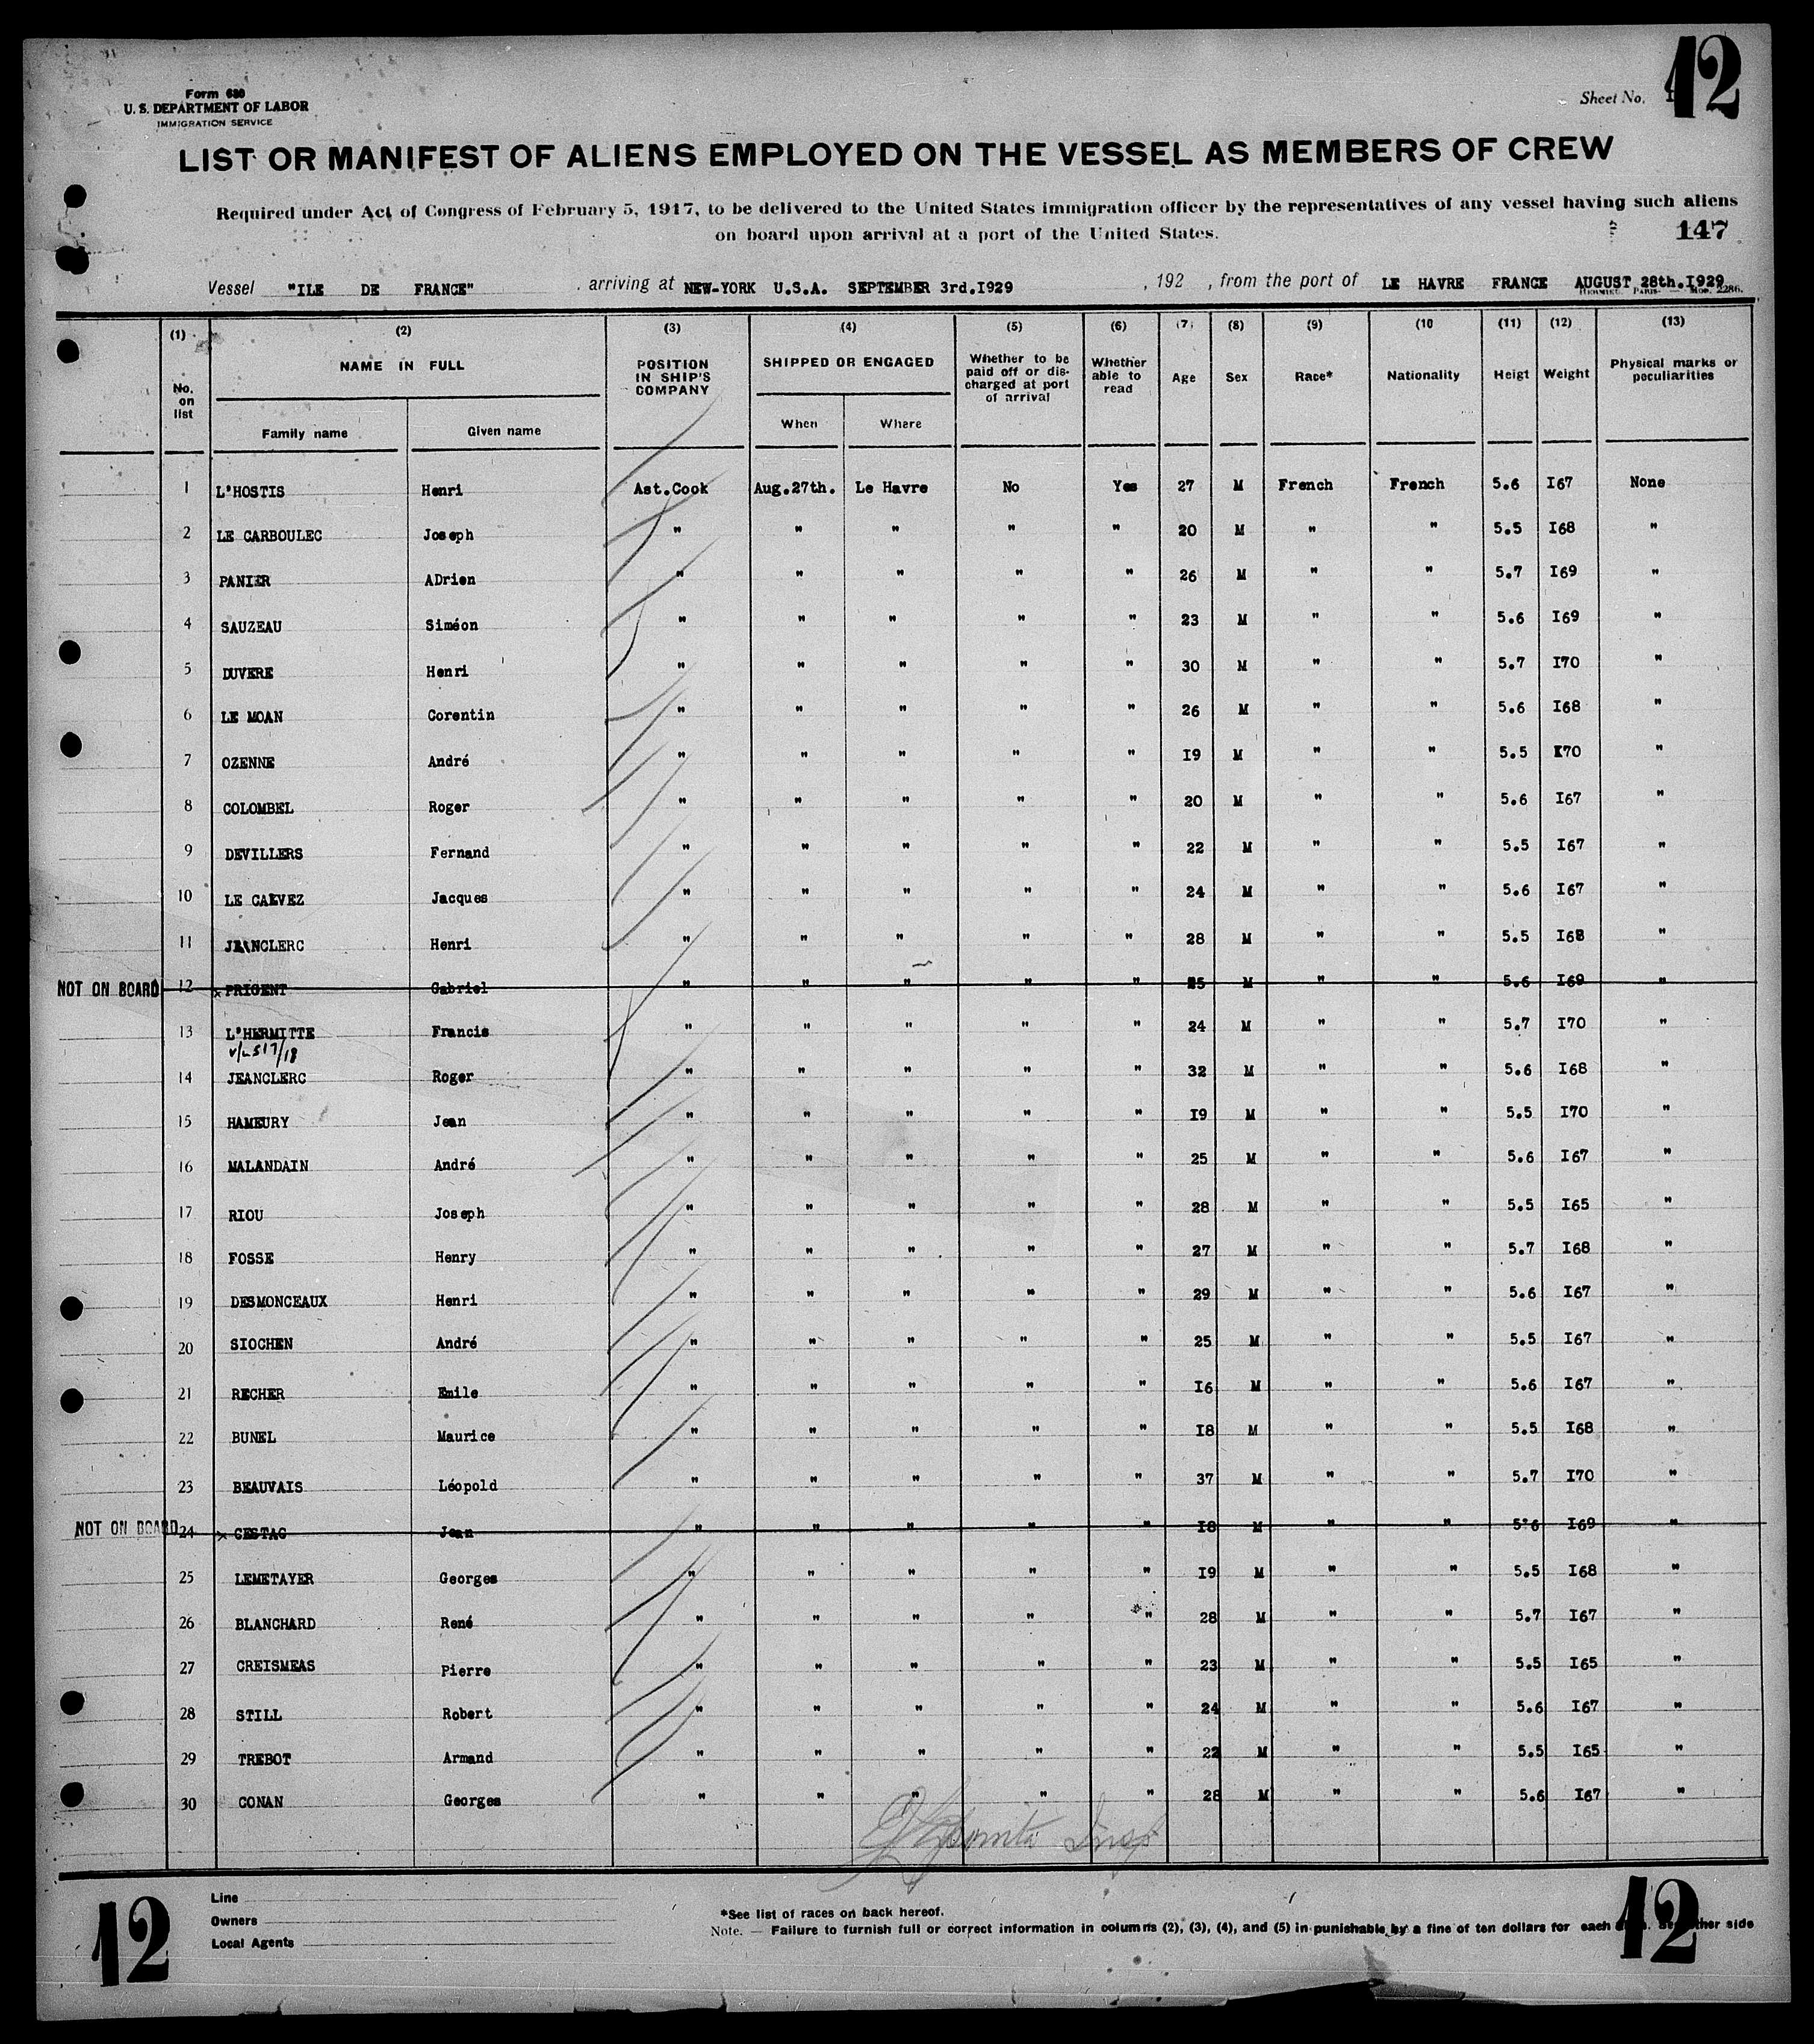 Form 680
U. S. DEPARTMENT OF LABOR
IMMIGRATION SERVICE
Sheet No. 12
LIST OR MANIFEST OF ALIENS EMPLOYED ON THE VESSEL AS MEMBERS OF CREW
Required under Act of Congress of February 5, 1917, to be delivered to the United States immigration officer by the representatives of any vessel having such aliens
on board upon arrival at a port of the United States.
147
Vessel "ILE DE FRANCE" , arriving at NEW-YORK U.S.A. SEPTEMBER 3rd.I929 , 192 , from the port of LE HAVRE FRANCE AUGUST 28th.I929
(1) (2) (3) (4) (5) (6) (7) (8) (9) (10 (11) (12) (13)
No. on list NAME IN FULL Family name Given name POSITION IN SHIP'S COMPANY SHIPPED OR ENGAGED When Where Whether to be paid off or discharged at port of arrival Whether able to read Age Sex Race* Nationality Heigt Weight Physical marks or peculiarities
1 L'HOSTIS Henri Ast.Cook Aug.27th. Le Havre No Yes 27 M French French 5.6 I67 None
2 LE CARBOULEC Joseph " " " " " 20 M " " 5.5 I68 "
3 PANIER ADrien " " " " " 26 M " " 5.7 I69 "
4 SAUZEAU Siméon " " " " " 23 M " " 5.6 I69 "
5 DUVERE Henri " " " " " 30 M " " 5.7 I70 "
6 LE MOAN Corentin " " " " " 26 M " " 5.6 I68 "
7 OZENNE André " " " " " I9 M " " 5.5 I70 "
8 COLOMBEL Roger " " " " " 20 M " " 5.6 I67 "
9 DEVILLERS Fernand " " " " " 22 M " " 5.5 I67 "
10 LE CALVEZ Jacques " " " " " 24 M " " 5.6 I67 "
11 JEANCLERC Henri " " " " " 28 M " " 5.5 I68 "
NOT ON BOARD 12 x PRIGENT Gabriel " " " " " 25 M " " 5.6 I69 "
13 L'HERMITTE Francis " " " " " 24 M " " 5.7 I70 "
14 JEANCLERC Roger " " " " " 32 M " " 5.6 I68 "
15 HAMEURY Jean " " " " " I9 M " " 5.5 I70 "
16 MALANDAIN André " " " " " 25 M " " 5.6 I67 "
17 RIOU Joseph " " " " " 28 M " " 5.5 I65 "
18 FOSSE Henry " " " " " 27 M " " 5.7 I68 "
19 DESMONCEAUX Henri " " " " " 29 M " " 5.6 I67 "
20 SIOCHEN André " " " " " 25 M " " 5.5 I67 "
21 RECHER Emile " " " " " I6 M " " 5.6 I67 "
22 BUNEL Maurice " " " " " I8 M " " 5.5 I68 "
23 BEAUVAIS Léopold " " " " " 37 M " " 5.7 I70 "
NOT ON BOARD 24 x CESTAC Jean " " " " " I8 M " " 5.6 I69 "
25 LEMETAYER Georges " " " " " I9 M " " 5.5 I68 "
26 BLANCHARD René " " " " " 28 M " " 5.7 I67 "
27 CREISMEAS Pierre " " " " " 23 M " " 5.5 I65 "
28 STILL Robert " " " " " 24 M " " 5.6 I67 "
29 TREBOT Armand " " " " " 22 M " " 5.5 I65 "
30 CONAN Georges " " " " " 28 M " " 5.6 I67 "
Line
Owners
Local Agents
*See list of races on back hereof.
Note. — Failure to furnish full or correct information in columns (2), (3), (4), and (5) in punishable by a fine of ten dollars for each other side
12
12